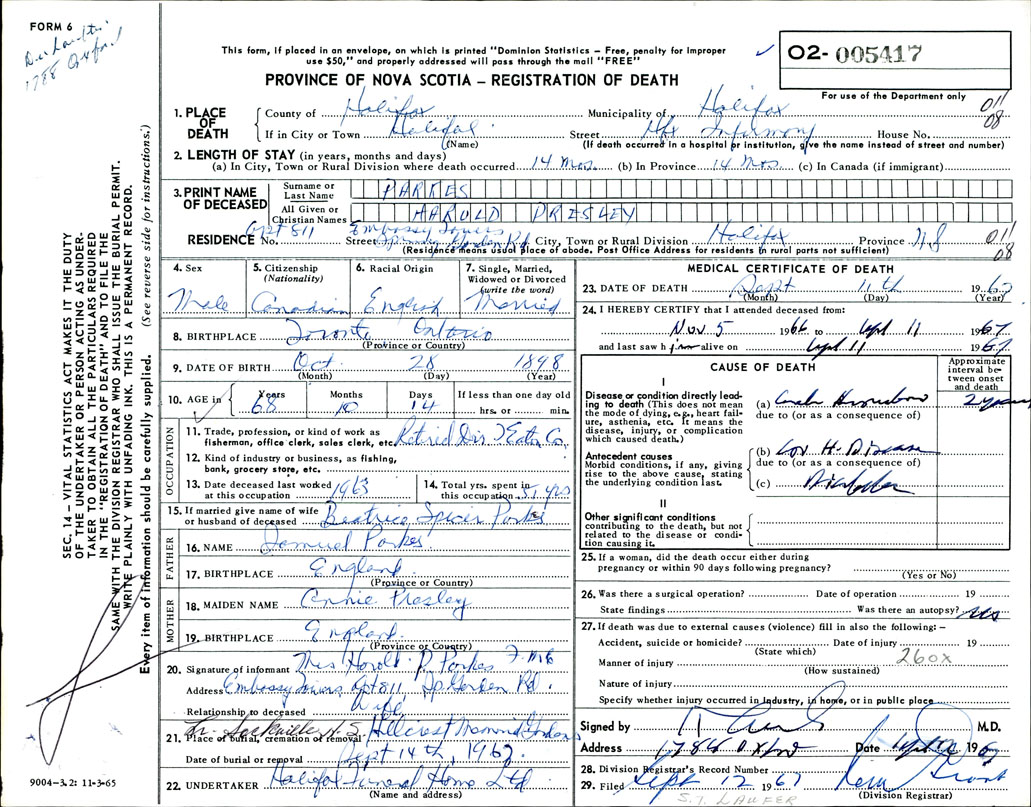 FORM 6
1788 Oxford
This form, if placed in an envelope, on which is printed "Dominion Statistics – Free, penalty for improper
use $50," and properly addressed will pass through the mail "FREE"
PROVINCE OF NOVA SCOTIA – REGISTRATION OF DEATH
02- 005417
For use of the Department only
011
08
1. PLACE OF DEATH
County of Halifax Municipality of Halifax
If in City or Town Halifax Street Hfx Infirmary House No.
(Name) (If death occurred in a hospital or institution, give the name instead of street and number)
2. LENGTH OF STAY (in years, months and days)
(a) In City, Town or Rural Division where death occurred 14 Mos. (b) In Province 14 Mos. (c) In Canada (if immigrant)
3. PRINT NAME OF DECEASED
Surname or Last Name PARKES
All Given or Christian Names HAROLD PRESLEY
Apt 811 Embassy Towers
RESIDENCE No. Street Spring Garden Rd City, Town or Rural Division Halifax Province NS
011
08
(Residence means usual place of abode. Post Office Address for residents in rural parts not sufficient)
4. Sex
Male
5. Citizenship
(Nationality)
Canadian
6. Racial Origin
English
7. Single, Married,
Widowed or Divorced
(write the word)
Married
8. BIRTHPLACE Toronto Ontario
(Province or Country)
9. DATE OF BIRTH Oct. 28 1898
(Month) (Day) (Year)
10. AGE in Years 68 Months 10 Days 14 If less than one day old
hrs. or min.
OCCUPATION
11. Trade, profession, or kind of work as
fisherman, office clerk, sales clerk, etc. Retired Dir T Eaton Co
12. Kind of industry or business, as fishing,
bank, grocery store, etc.
13. Date deceased last worked
at this occupation 1963
14. Total yrs. spent in
this occupation 51 yrs
15. If married give name of wife
or husband of deceased Beatrice Spicer Parkes
FATHER
16. NAME Samuel Parkes
17. BIRTHPLACE England
(Province or Country)
MOTHER
18. MAIDEN NAME Annie Presley
19. BIRTHPLACE England
(Province or Country)
20. Signature of informant Mrs Harold P. Parkes
Address Embassy Towers Apt 811, Sp. Garden Rd.
Relationship to deceased Wife
Lr. Sackville N.S. Hillcrest Memorial Gardens
21. Place of burial, cremation or removal
Date of burial or removal Sept 14th, 1967
22. UNDERTAKER Halifax Funeral Home Ltd
(Name and address)
MEDICAL CERTIFICATE OF DEATH
23. DATE OF DEATH Sept 11th 1967
(Month) (Day) (Year)
24. I HEREBY CERTIFY that I attended deceased from:
Nov 5 1966 to Sept 11 1967
and last saw him alive on Sept 11 1967
CAUSE OF DEATH
Approximate
interval be-
tween onset
and death
I
Disease or condition directly lead-
ing to death (This does not mean
the mode of dying, e.g., heart fail-
ure, asthenia, etc. It means the
disease, injury, or complication
which caused death.)
(a)
2 years
due to (or as a consequence of)
Antecedent causes
Morbid conditions, if any, giving
rise to the above cause, stating
the underlying condition last.
(b) Cor. H. Disease
due to (or as a consequence of)
(c) Diabetes
II
Other significant conditions
contributing to the death, but not
related to the disease or condi-
tion causing it.
25. If a woman, did the death occur either during
pregnancy or within 90 days following pregnancy?
(Yes or No)
26. Was there a surgical operation? Date of operation 19
State findings Was there an autopsy?
27. If death was due to external causes (violence) fill in also the following: –
Accident, suicide or homicide? Date of injury 19
(State which)
260X
Manner of injury
(How sustained)
Nature of injury
Specify whether injury occurred in industry, in home, or in public place
Signed by M.D.
Address 1788 Oxford Date Sept 12 1967
28. Division Registrar's Record Number
29. Filed Sept 12 1967
(Division Registrar)
S.T. LAUFER
SEC. 14 – VITAL STATISTICS ACT MAKES IT THE DUTY
OF THE UNDERTAKER OR PERSON ACTING AS UNDER-
TAKER TO OBTAIN ALL THE PARTICULARS REQUIRED
IN THE "REGISTRATION OF DEATH" AND TO FILE THE
SAME WITH THE DIVISION REGISTRAR WHO SHALL ISSUE THE BURIAL PERMIT.
WRITE PLAINLY WITH UNFADING INK. THIS IS A PERMANENT RECORD.
Every item of information should be carefully supplied. (See reverse side for instructions.)
9004-3.2: 11-3-65